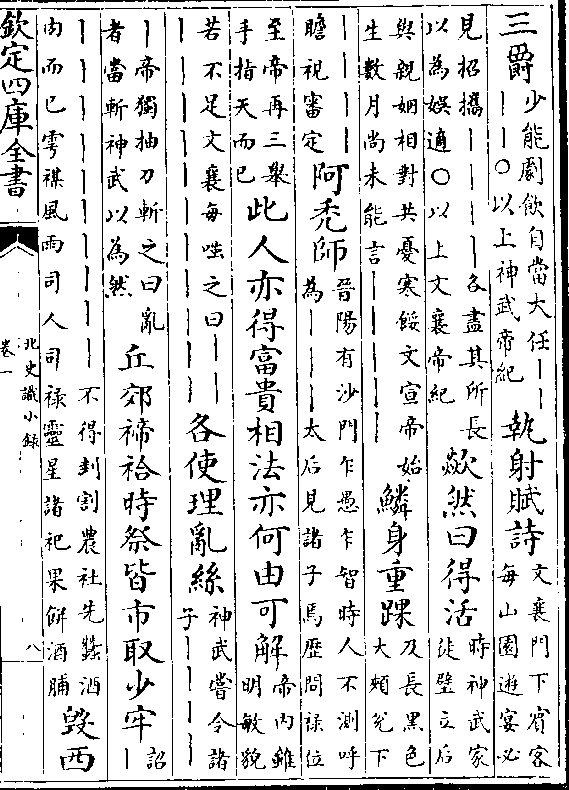 三爵少能劇飲自當大任丨丨丨丨○以上神武帝紀執射賦詩文襄門下賔客每山園遊宴必
見招攜丨丨丨丨各盡其所長以為娛適○以上文襄帝紀歘然曰得活時神武家徒壁立后
與親姻相對共憂寒餒文宣帝始生數月尚未能言丨丨丨丨鱗身重踝及長黑色大頰兌下
丨丨丨丨瞻視審定阿禿師晉陽有沙門乍愚乍智時人不測呼為丨丨丨太后見諸子焉歷問禄位
至帝再三舉手指天而已此人亦得富貴相法亦何由可解帝内雖明敏貌
若不足文襄每嗤之曰丨丨丨丨丨丨丨丨丨丨丨丨各使理亂絲神武嘗令諸子丨丨丨丨
丨帝獨抽刀斬之曰亂者當斬神武以為然丘郊禘祫時祭皆市取少牢詔丨
丨丨丨丨丨丨丨丨丨不得刲割農社先蠶酒肉而已雩禖風雨司人司禄靈星諸祀果餅酒脯毁西
欽定四庫全書
北史識小録
卷一
八